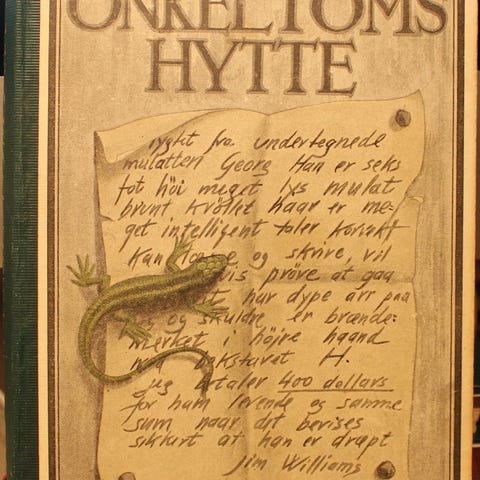 ONKEL TOMS
HYTTE
rygt fra undertegnede
mulatten Georg Han er seks
fot höi meget lys mulat
brunt kröllet haar er me-
get intelligent taler korrekt
Kan og skrive, vil
vis pröve at gaa
har dype arr paa
og skuldre er brænde-
mærket i höjre haand
med bokstavet H.
jeg betaler 400 dollars
for ham levende og samme
sum naar det bevises
sikkert at han er dræpt
Jim Williams